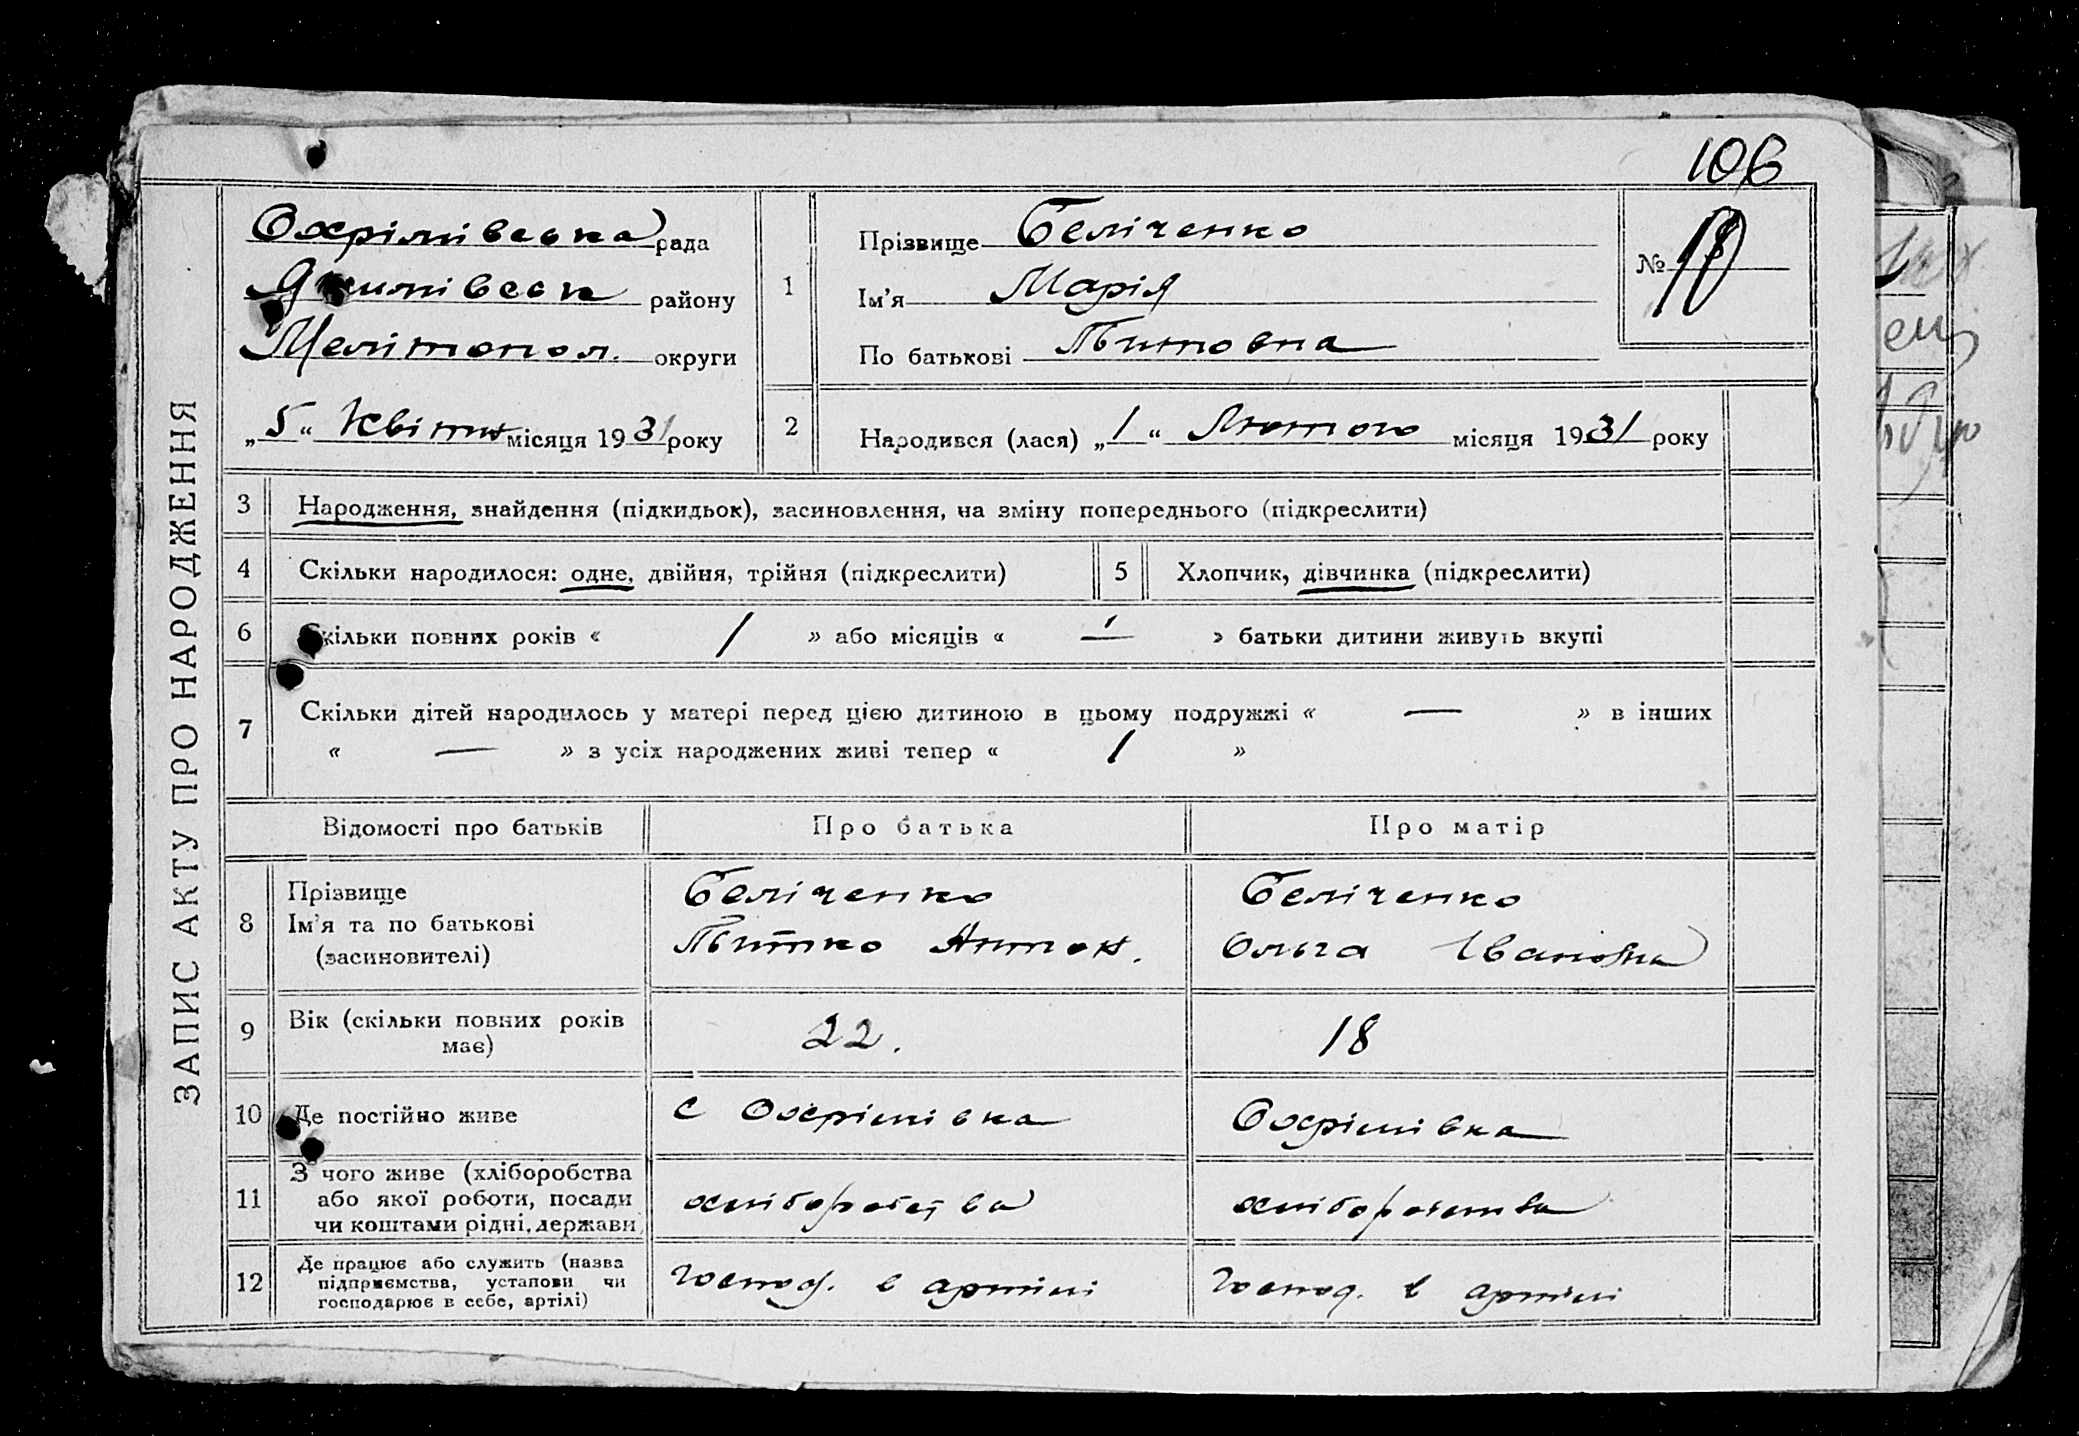 106
Охрімівська рада
Якимівськ району
Мелітопол. округи
„5“ Квітня місяця 1931 року
1
Прізвище Беліченко
Ім’я Марія
По батькові Титовна
№ 18
2
Народився (лася) „1“ Лютого місяця 1931 року
ЗАПИС АКТУ ПРО НАРОДЖЕННЯ
3 Народження, знайдення (підкидьок), засиновлення, на зміну попереднього (підкреслити)
4 Скільки народилося: одне, двійня, трійня (підкреслити) 5 Хлопчик, дівчинка (підкреслити)
6 Скільки повних років « 1 » або місяців « — » батьки дитини живуть вкупі
7 Скільки дітей народилось у матері перед цією дитиною в цьому подружжі « — » в інших
« — » з усіх народжених живі тепер « 1 »
Відомості про батьків Про батька Про матір
8 Прізвище
Ім’я та по батькові
(засиновителі)
Беліченко
Антон.
Беліченко
Ольга Івановна
9 Вік (скільки повних років
має)
22.
18
10 Де постійно живе с Охрімівка Охрімівка
11 З чого живе (хліборобства
або якої роботи, посади
чи коштами рідні, держави)
хліборобства
хліборобства
12 Де працює або служить (назва
підприємства, установи чи
господарює в себе, артілі)
господ. в артілі
господ. в артілі